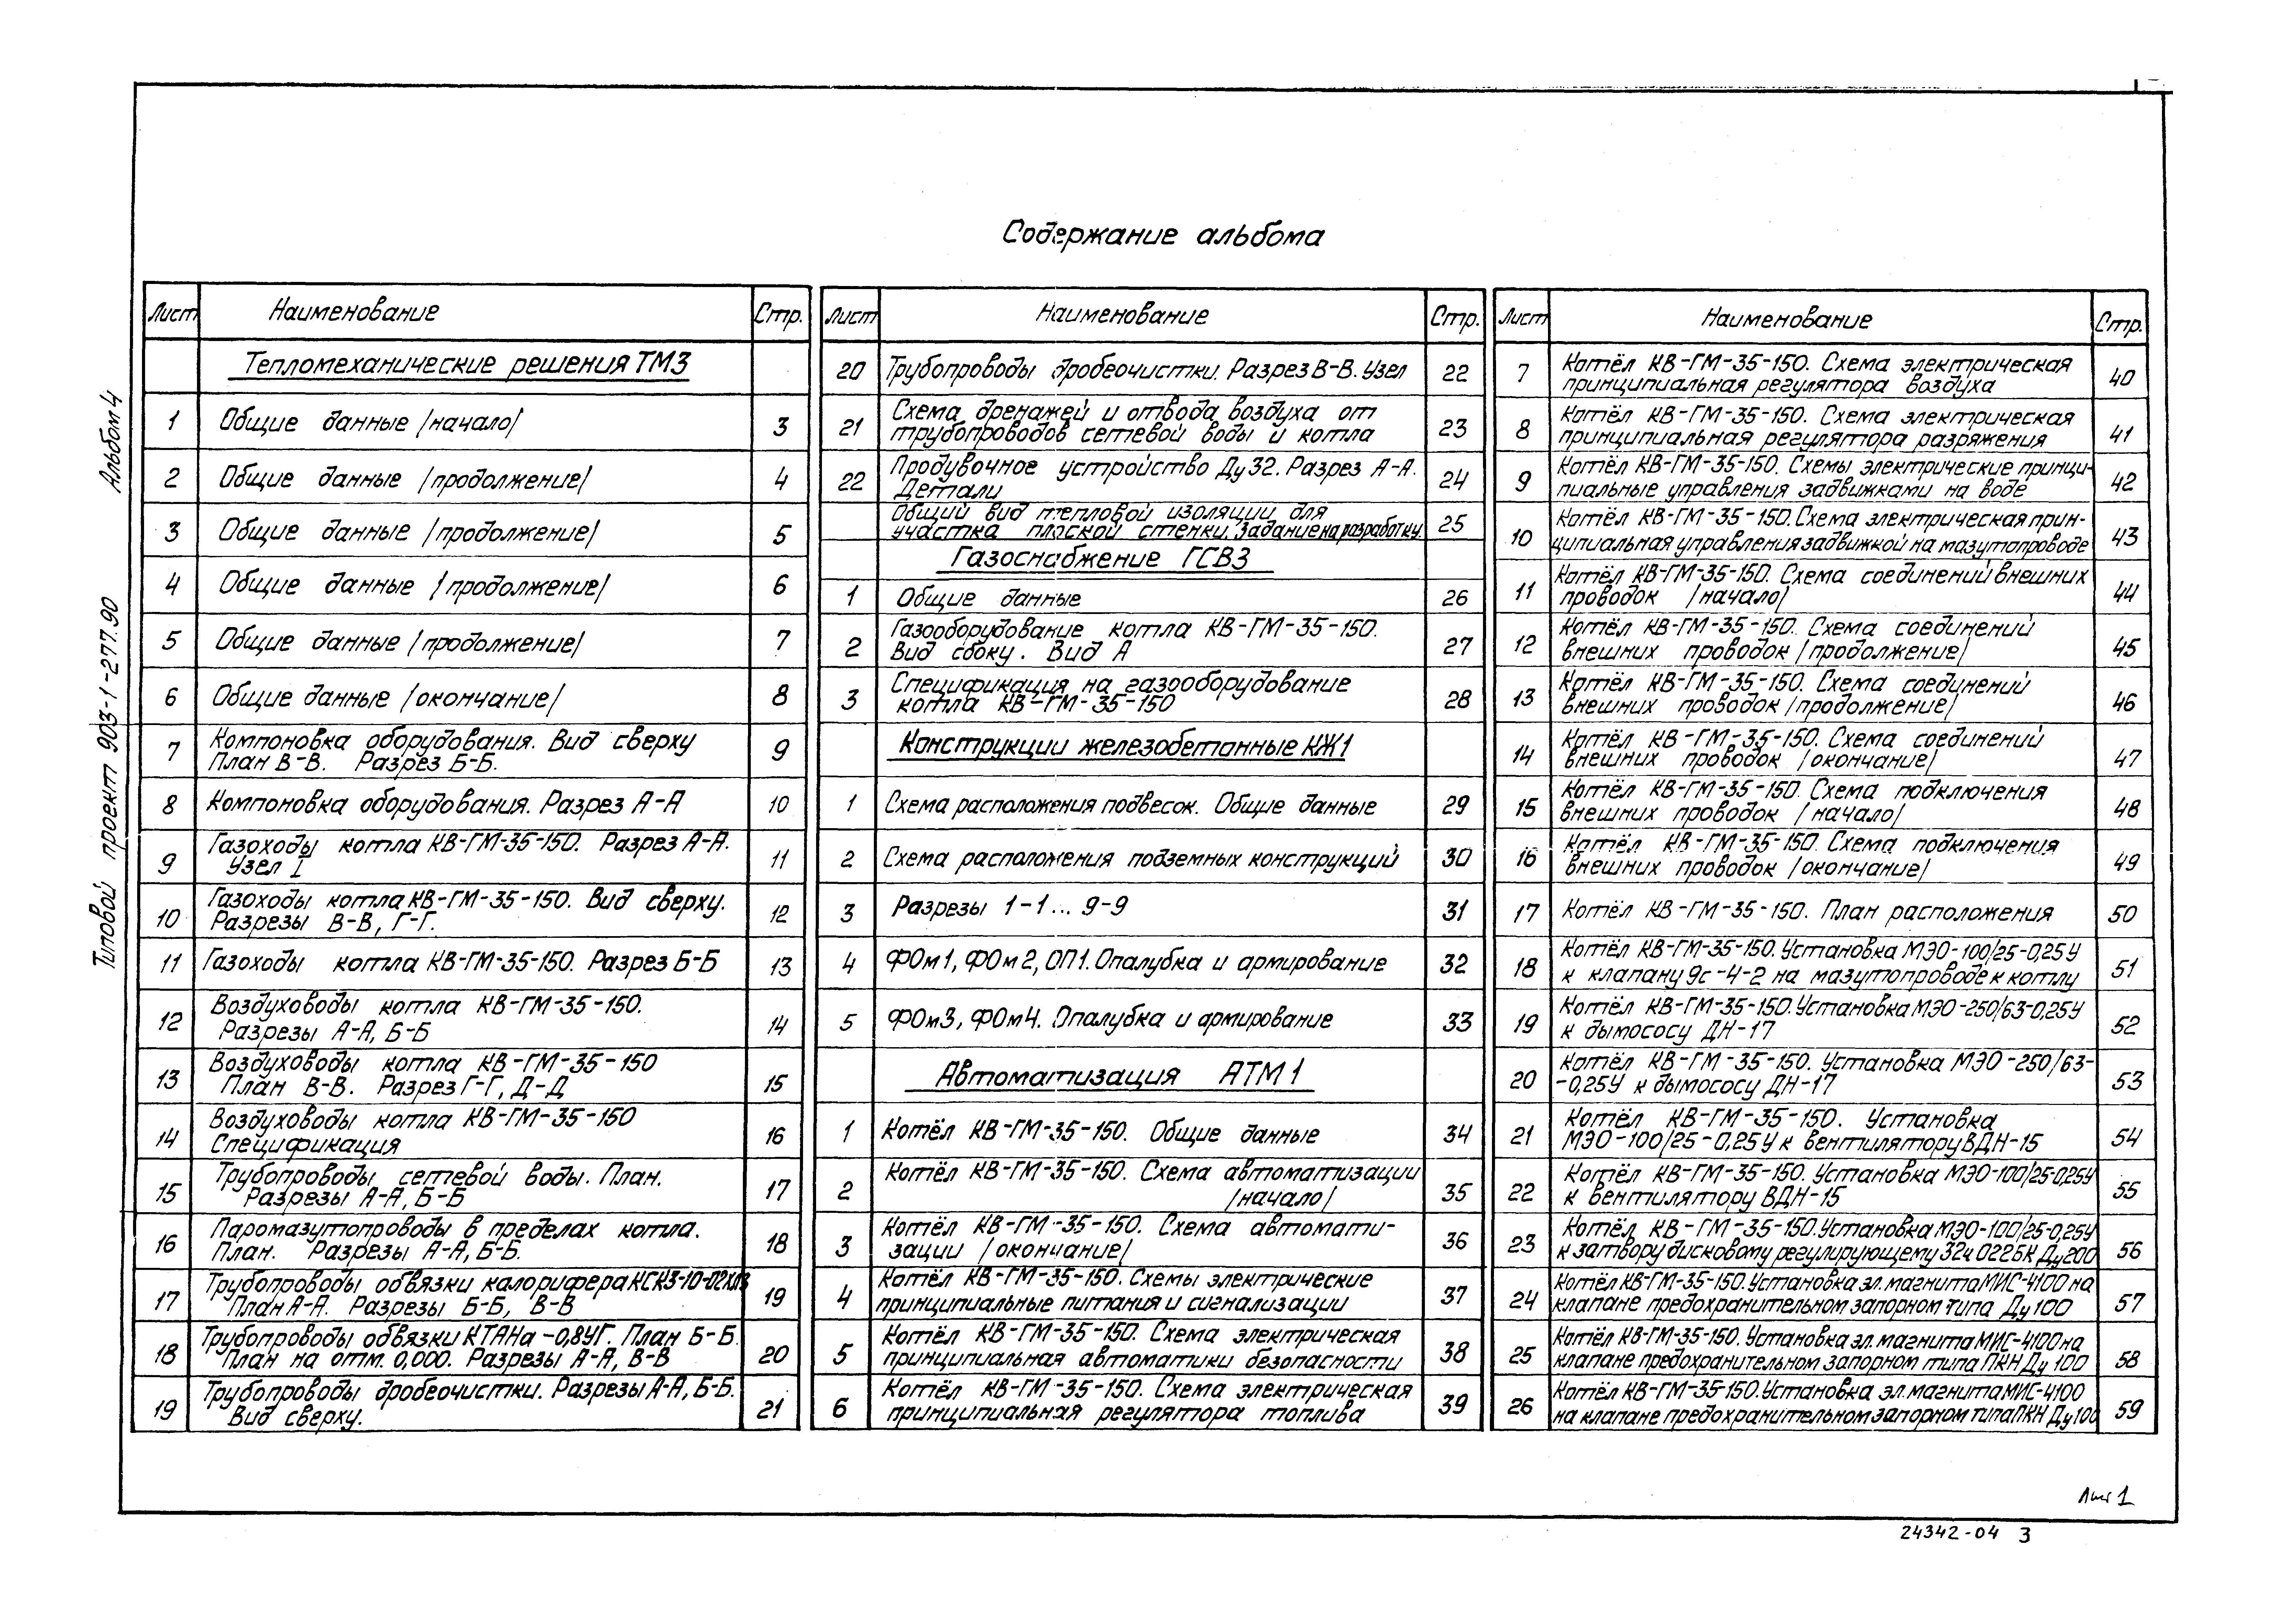 Содержание альбома
Типовой проект 903-1-277.90 Альбом 4
Лист Наименование Стр.
Тепломеханические решения ТМ3
1 Общие данные /начало/ 3
2 Общие данные /продолжение/ 4
3 Общие данные /продолжение/ 5
4 Общие данные /продолжение/ 6
5 Общие данные /продолжение/ 7
6 Общие данные /окончание/ 8
7 Компоновка оборудования. Вид сверху 9
План В-В. Разрез Б-Б.
8 Компоновка оборудования. Разрез А-А 10
9 Газоходы котла КВ-ГМ-35-150. Разрез А-А. 11
Узел I
10 Газоходы котла КВ-ГМ-35-150. Вид сверху. 12
Разрезы В-В, Г-Г.
11 Газоходы котла КВ-ГМ-35-150. Разрез Б-Б 13
12 Воздуховоды котла КВ-ГМ-35-150. 14
Разрезы А-А, Б-Б
13 Воздуховоды котла КВ-ГМ-35-150 15
План В-В. Разрез Г-Г, Д-Д
14 Воздуховоды котла КВ-ГМ-35-150 16
Спецификация
15 Трубопроводы сетевой воды. План. 17
Разрезы А-А, Б-Б
16 Паромазутопроводы в пределах котла. 18
План. Разрезы А-А, Б-Б.
17 Трубопроводы обвязки калорифера КСК3-10-02ХЛ3 19
План А-А. Разрезы Б-Б, В-В
18 Трубопроводы обвязки КТАНа-0,8УГ. План Б-Б. 20
План на отм. 0,000. Разрезы А-А, В-В
19 Трубопроводы дробеочистки. Разрезы А-А, Б-Б. 21
Вид сверху.
Лист Наименование Стр.
20 Трубопроводы дробеочистки. Разрез В-В. Узел 22
21 Схема дренажей и отвода воздуха от 23
трубопроводов сетевой воды и котла
22 Продувочное устройство Ду 32. Разрез А-А. 24
Детали
Общий вид тепловой изоляции для 25
участка плоской стенки. Задание на разработку.
Газоснабжение ГСВ3
1 Общие данные 26
2 Газооборудование котла КВ-ГМ-35-150. 27
Вид сбоку. Вид А
3 Спецификация на газооборудование 28
котла КВ-ГМ-35-150
Конструкции железобетонные КЖ1
1 Схема расположения подвесок. Общие данные 29
2 Схема расположения подземных конструкций 30
3 Разрезы 1-1... 9-9 31
4 ФОм1, ФОм2, ОП1. Опалубка и армирование 32
5 ФОм3, ФОм4. Опалубка и армирование 33
Автоматизация АТМ1
1 Котёл КВ-ГМ-35-150. Общие данные 34
2 Котёл КВ-ГМ-35-150. Схема автоматизации 35
/начало/
3 Котёл КВ-ГМ-35-150. Схема автомати- 36
зации /окончание/
4 Котёл КВ-ГМ-35-150. Схемы электрические 37
принципиальные питания и сигнализации
5 Котёл КВ-ГМ-35-150. Схема электрическая 38
принципиальная автоматики безопасности
6 Котёл КВ-ГМ-35-150. Схема электрическая 39
принципиальная регулятора топлива
Лист Наименование Стр.
7 Котёл КВ-ГМ-35-150. Схема электрическая 40
принципиальная регулятора воздуха
8 Котёл КВ-ГМ-35-150. Схема электрическая 41
принципиальная регулятора разряжения
9 Котёл КВ-ГМ-35-150. Схемы электрические принци- 42
пиальные управления задвижками на воде
10 Котёл КВ-ГМ-35-150. Схема электрическая прин- 43
ципиальная управления задвижкой на мазутопроводе
11 Котёл КВ-ГМ-35-150. Схема соединений внешних 44
проводок /начало/
12 Котёл КВ-ГМ-35-150. Схема соединений 45
внешних проводок /продолжение/
13 Котёл КВ-ГМ-35-150. Схема соединений 46
внешних проводок /продолжение/
14 Котёл КВ-ГМ-35-150. Схема соединений 47
внешних проводок /окончание/
15 Котёл КВ-ГМ-35-150. Схема подключения 48
внешних проводок /начало/
16 Котёл КВ-ГМ-35-150. Схема подключения 49
внешних проводок /окончание/
17 Котёл КВ-ГМ-35-150. План расположения 50
18 Котёл КВ-ГМ-35-150. Установка МЭО-100/25-0,25У 51
к клапану 9с-4-2 на мазутопроводе к котлу
19 Котёл КВ-ГМ-35-150. Установка МЭО-250/63-0,25У 52
к дымососу ДН-17
20 Котёл КВ-ГМ-35-150. Установка МЭО-250/63- 53
-0,25У к дымососу ДН-17
21 Котёл КВ-ГМ-35-150. Установка 54
МЭО-100/25-0,25У к вентилятору ВДН-15
22 Котёл КВ-ГМ-35-150. Установка МЭО-100/25-0,25У 55
к вентилятору ВДН-15
23 Котёл КВ-ГМ-35-150. Установка МЭО-100/25-0,25У 56
к затвору дисковому регулирующему 32ч 022БК Ду200
24 Котёл КВ-ГМ-35-150. Установка эл. магнита МИС-4100 на 57
клапане предохранительном запорном типа Ду 100
25 Котёл КВ-ГМ-35-150. Установка эл. магнита МИС-4100 на 58
клапане предохранительном запорном типа ПКН Ду 100
26 Котёл КВ-ГМ-35-150. Установка эл. магнита МИС-4100 59
на клапане предохранительном запорном типа ПКН Ду 100
Лист 1
24342-04 3